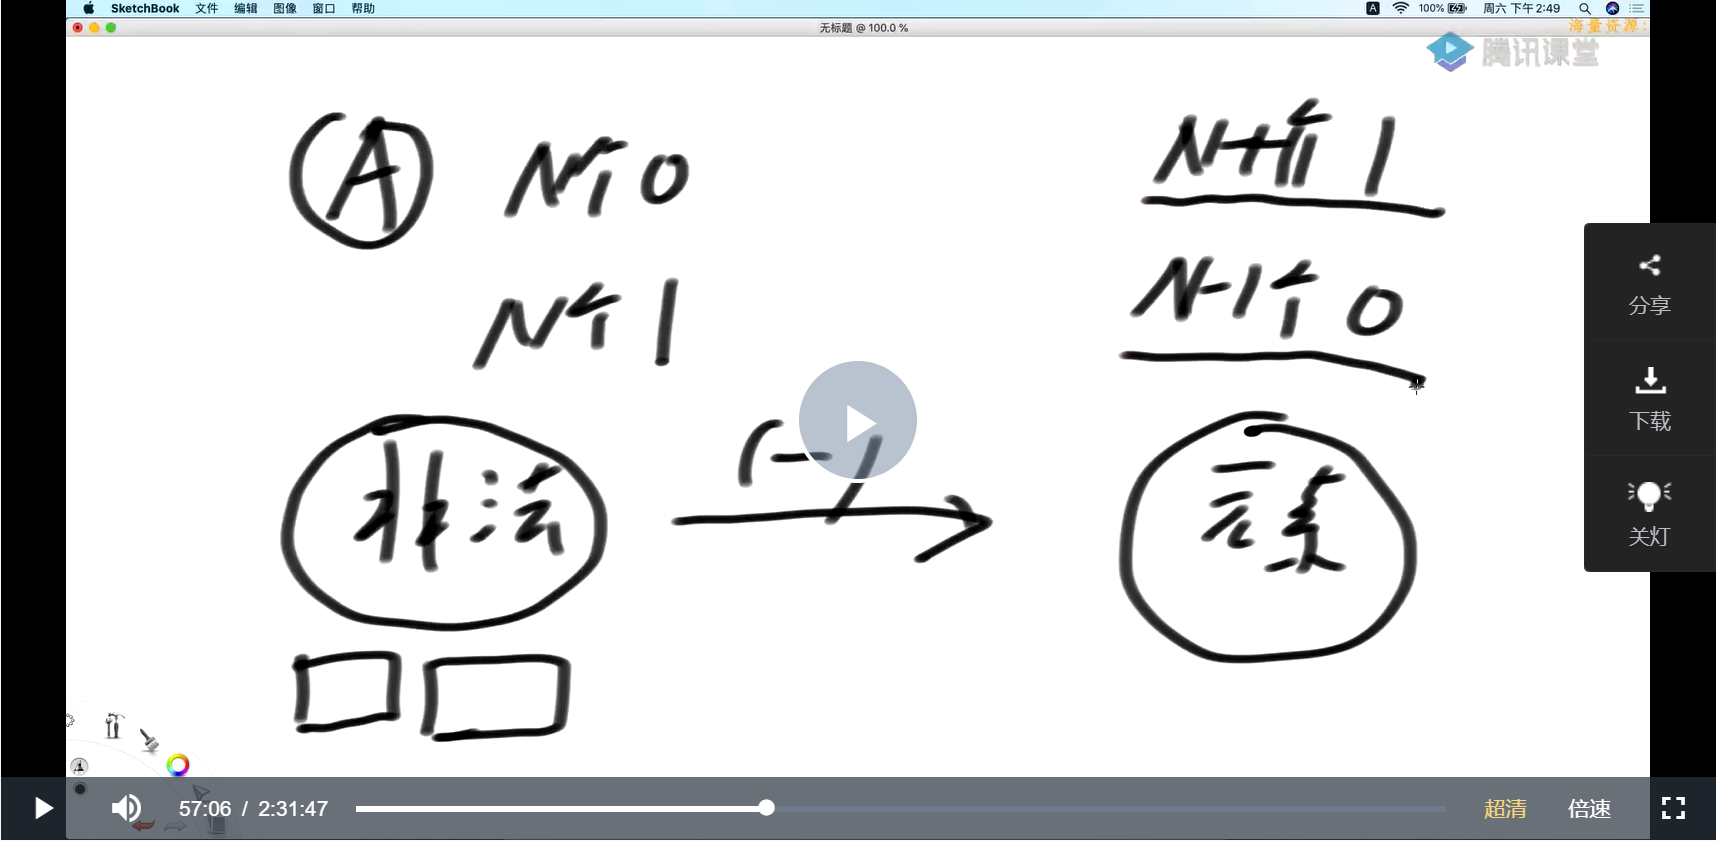 SketchBook 文件 编辑 图像 窗口 帮助
A 100% 周六 下午2:49
无标题 @ 100.0 %
海量资源:
腾讯课堂
A N个0 N+1个1
N个1 N-1个0
非法 (一)
分享
下载
关灯
57:06 / 2:31:47 超清 倍速